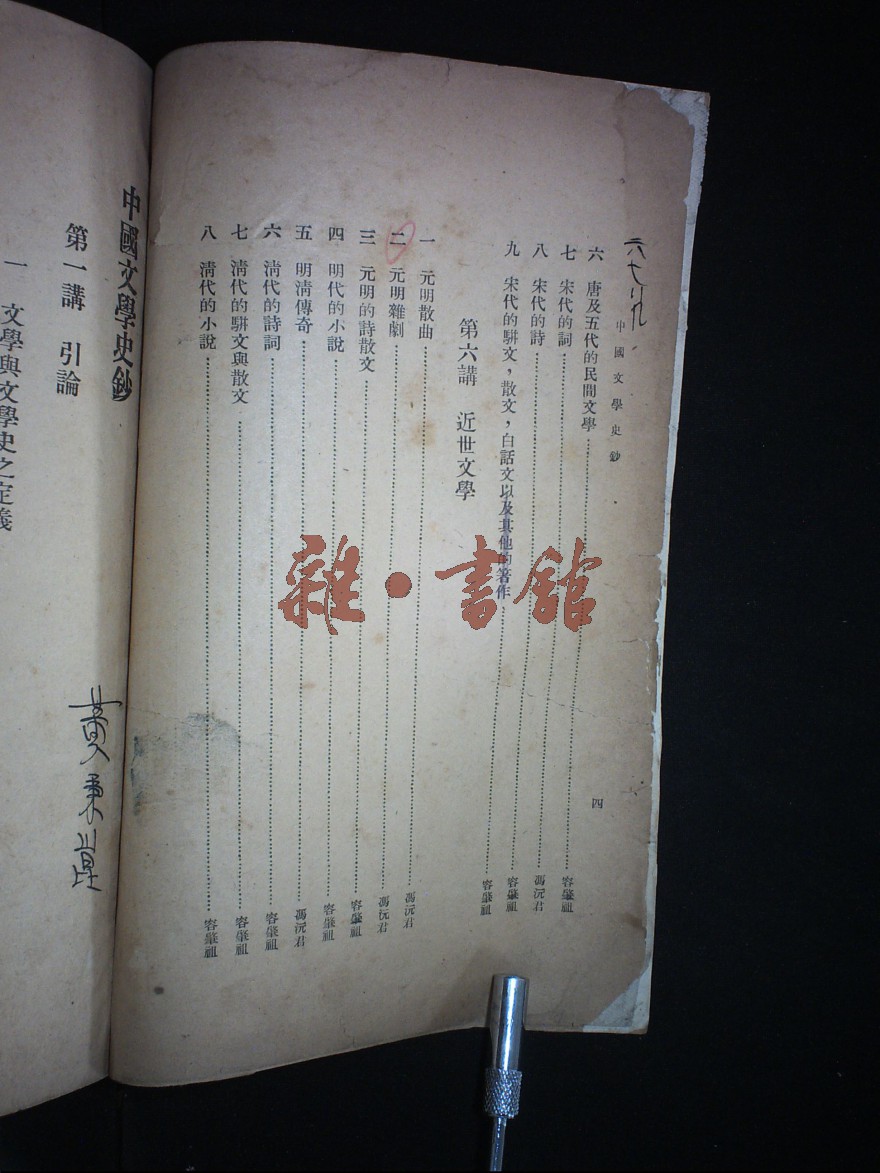 中國文學史鈔
四
六 唐及五代的民間文學 容肇祖
七 宋代的詞 馮沅君
八 宋代的詩 容肇祖
九 宋代的駢文，散文，白話文以及其他的著作 容肇祖
第六講 近世文學
一 元明散曲 馮沅君
二 元明雜劇 馮沅君
三 元明的詩散文 容肇祖
四 明代的小說 容肇祖
五 明清傳奇 馮沅君
六 清代的詩詞 容肇祖
七 清代的駢文與散文 容肇祖
八 清代的小說 容肇祖
中國文學史鈔
第一講 引論
一 文學與文學史之定義
雜·書館